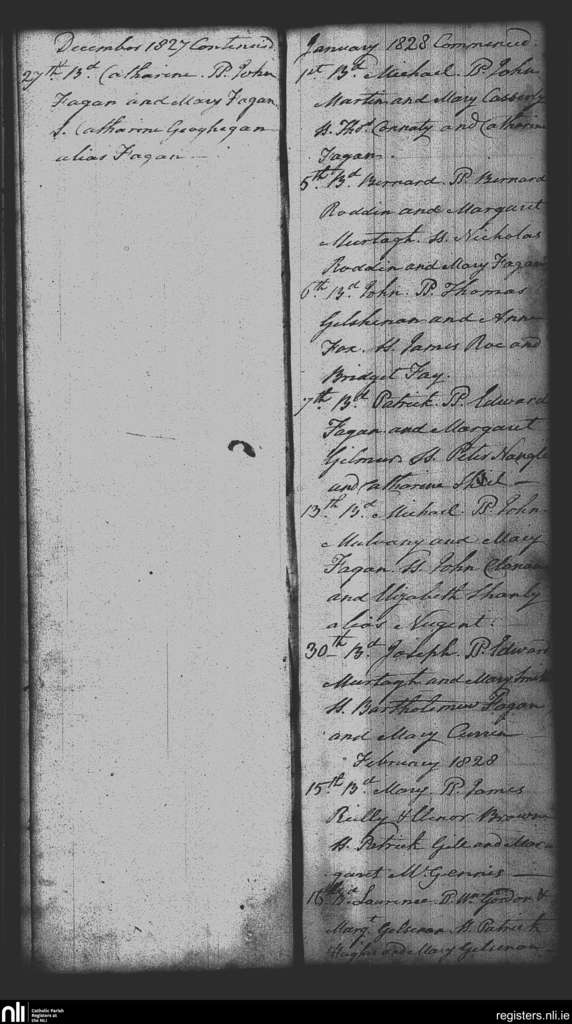 December 1827 Continued
27th Bd Catharine. PP. John
Fagan and Mary Fagan
S. Catharine Geoghegan
alias Fagan —
January 1828 Commenced.
1st Bd Michael. PP John
Martin and Mary Casserly
SS. Thos. Connaty and Catharine
Fagan.
5th Bd Bernard. PP. Bernard
Roddin and Margaret
Murtagh. SS. Nicholas
Roddin and Mary Fagan
6th Bd John. PP. Thomas
Gilshenan and Anne
Fox. SS. James Roe and
Bridget Fay.
7th Bd Patrick PP. Edward
Fagan and Margaret
Gilmur. SS. Peter Nangle
and Catharine Shiel —
13th Bd Michael. PP John
Mulvany and Mary
Fagan. SS. John
and Elizabeth Shanly
alias Nugent.
30th Bd Joseph. PP. Edward
Murtagh and Mary Smith
SS. Bartholomew Fagan
and Mary Curren
February 1828
15th Bd Mary PP. James
Reilly & Elenor Browne
SS. Patrick Gill and Mar
garet McGennis —
16th Bd Laurence PP. Wm Gordon &
Margt. Gilsenan SS. Patrick
Hughes and Mary Gilsenan
nli
Catholic Parish
Registers at
the NLI
registers.nli.ie